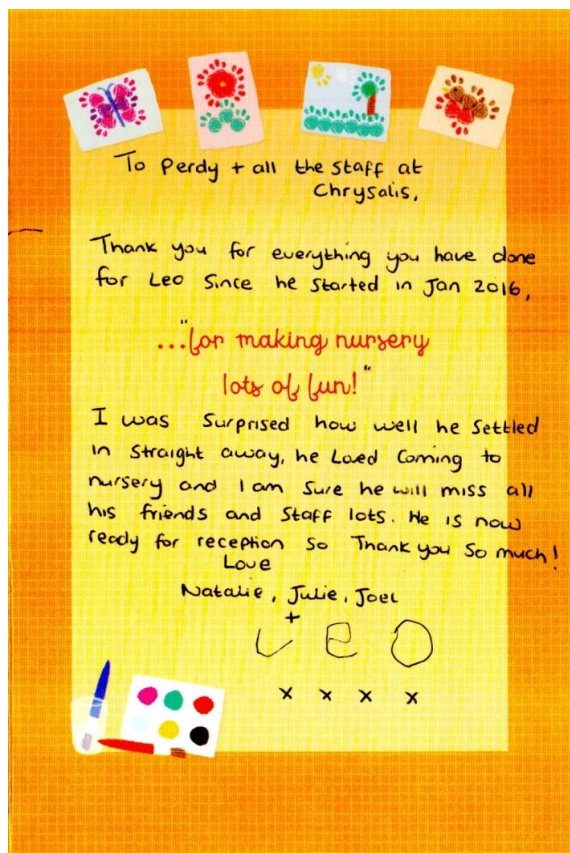 To Perdy + all the staff at
Chrysalis,
Thank you for everything you have done
for Leo Since he started in Jan 2016,
..."for making nursery
lots of fun!"
I was Surprised how well he settled
in straight away, he Loved Coming to
nursery and I am Sure he will miss all
his friends and Staff lots. He is now
ready for reception So Thank you So much!
Love
Natalie, Julie, Joel
+
Leo
x x x x